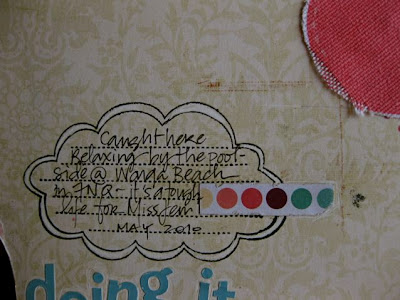 Caught here
Relaxing by the pool-
side @ Wanda Beach
in FNQ - it's a tough
life for Miss fern!
MAY 2010
doing it